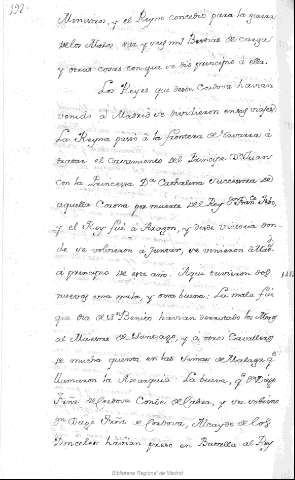 192
Ministros, y el Reyno concedió para la guerra
de los Moros diez y seys mil Bestias de carga
y otras cosas con que se dio principio á ella.
Los Reyes que desde Cordova havian
venido á Madrid se dividieron en sus viajes
La Reyna passó á la frontera de Navarra á
tratar el Casamiento del Principe Dn Juan
con la Princessa Da Cathalina successora de
aquella Corona por muerte del Rey Dn Franco Febo,
y el Rey fué á Aragon, y desde Victoria don-
de se volvieron á juntar, se vinieron á Mad.
á principio de este año. Aqui tuvieron dos
nuevas una mala, y otra buena: La mala fué
que dia de Sn Benito havian derrotado los Moros
al Maestre de Santiago, y á otros Cavalleros
de mucha quenta en las Viñas de Malaga qe
llamaron la Axarquia. La buena, qe Dn Diego
Frñz de Cordova Conde de Cabra, y su sobrino
Dn Diego Frñz de Cordova, Alcayde de los
Donceles havian preso en Batalla al Rey
Biblioteca Regional de Madrid